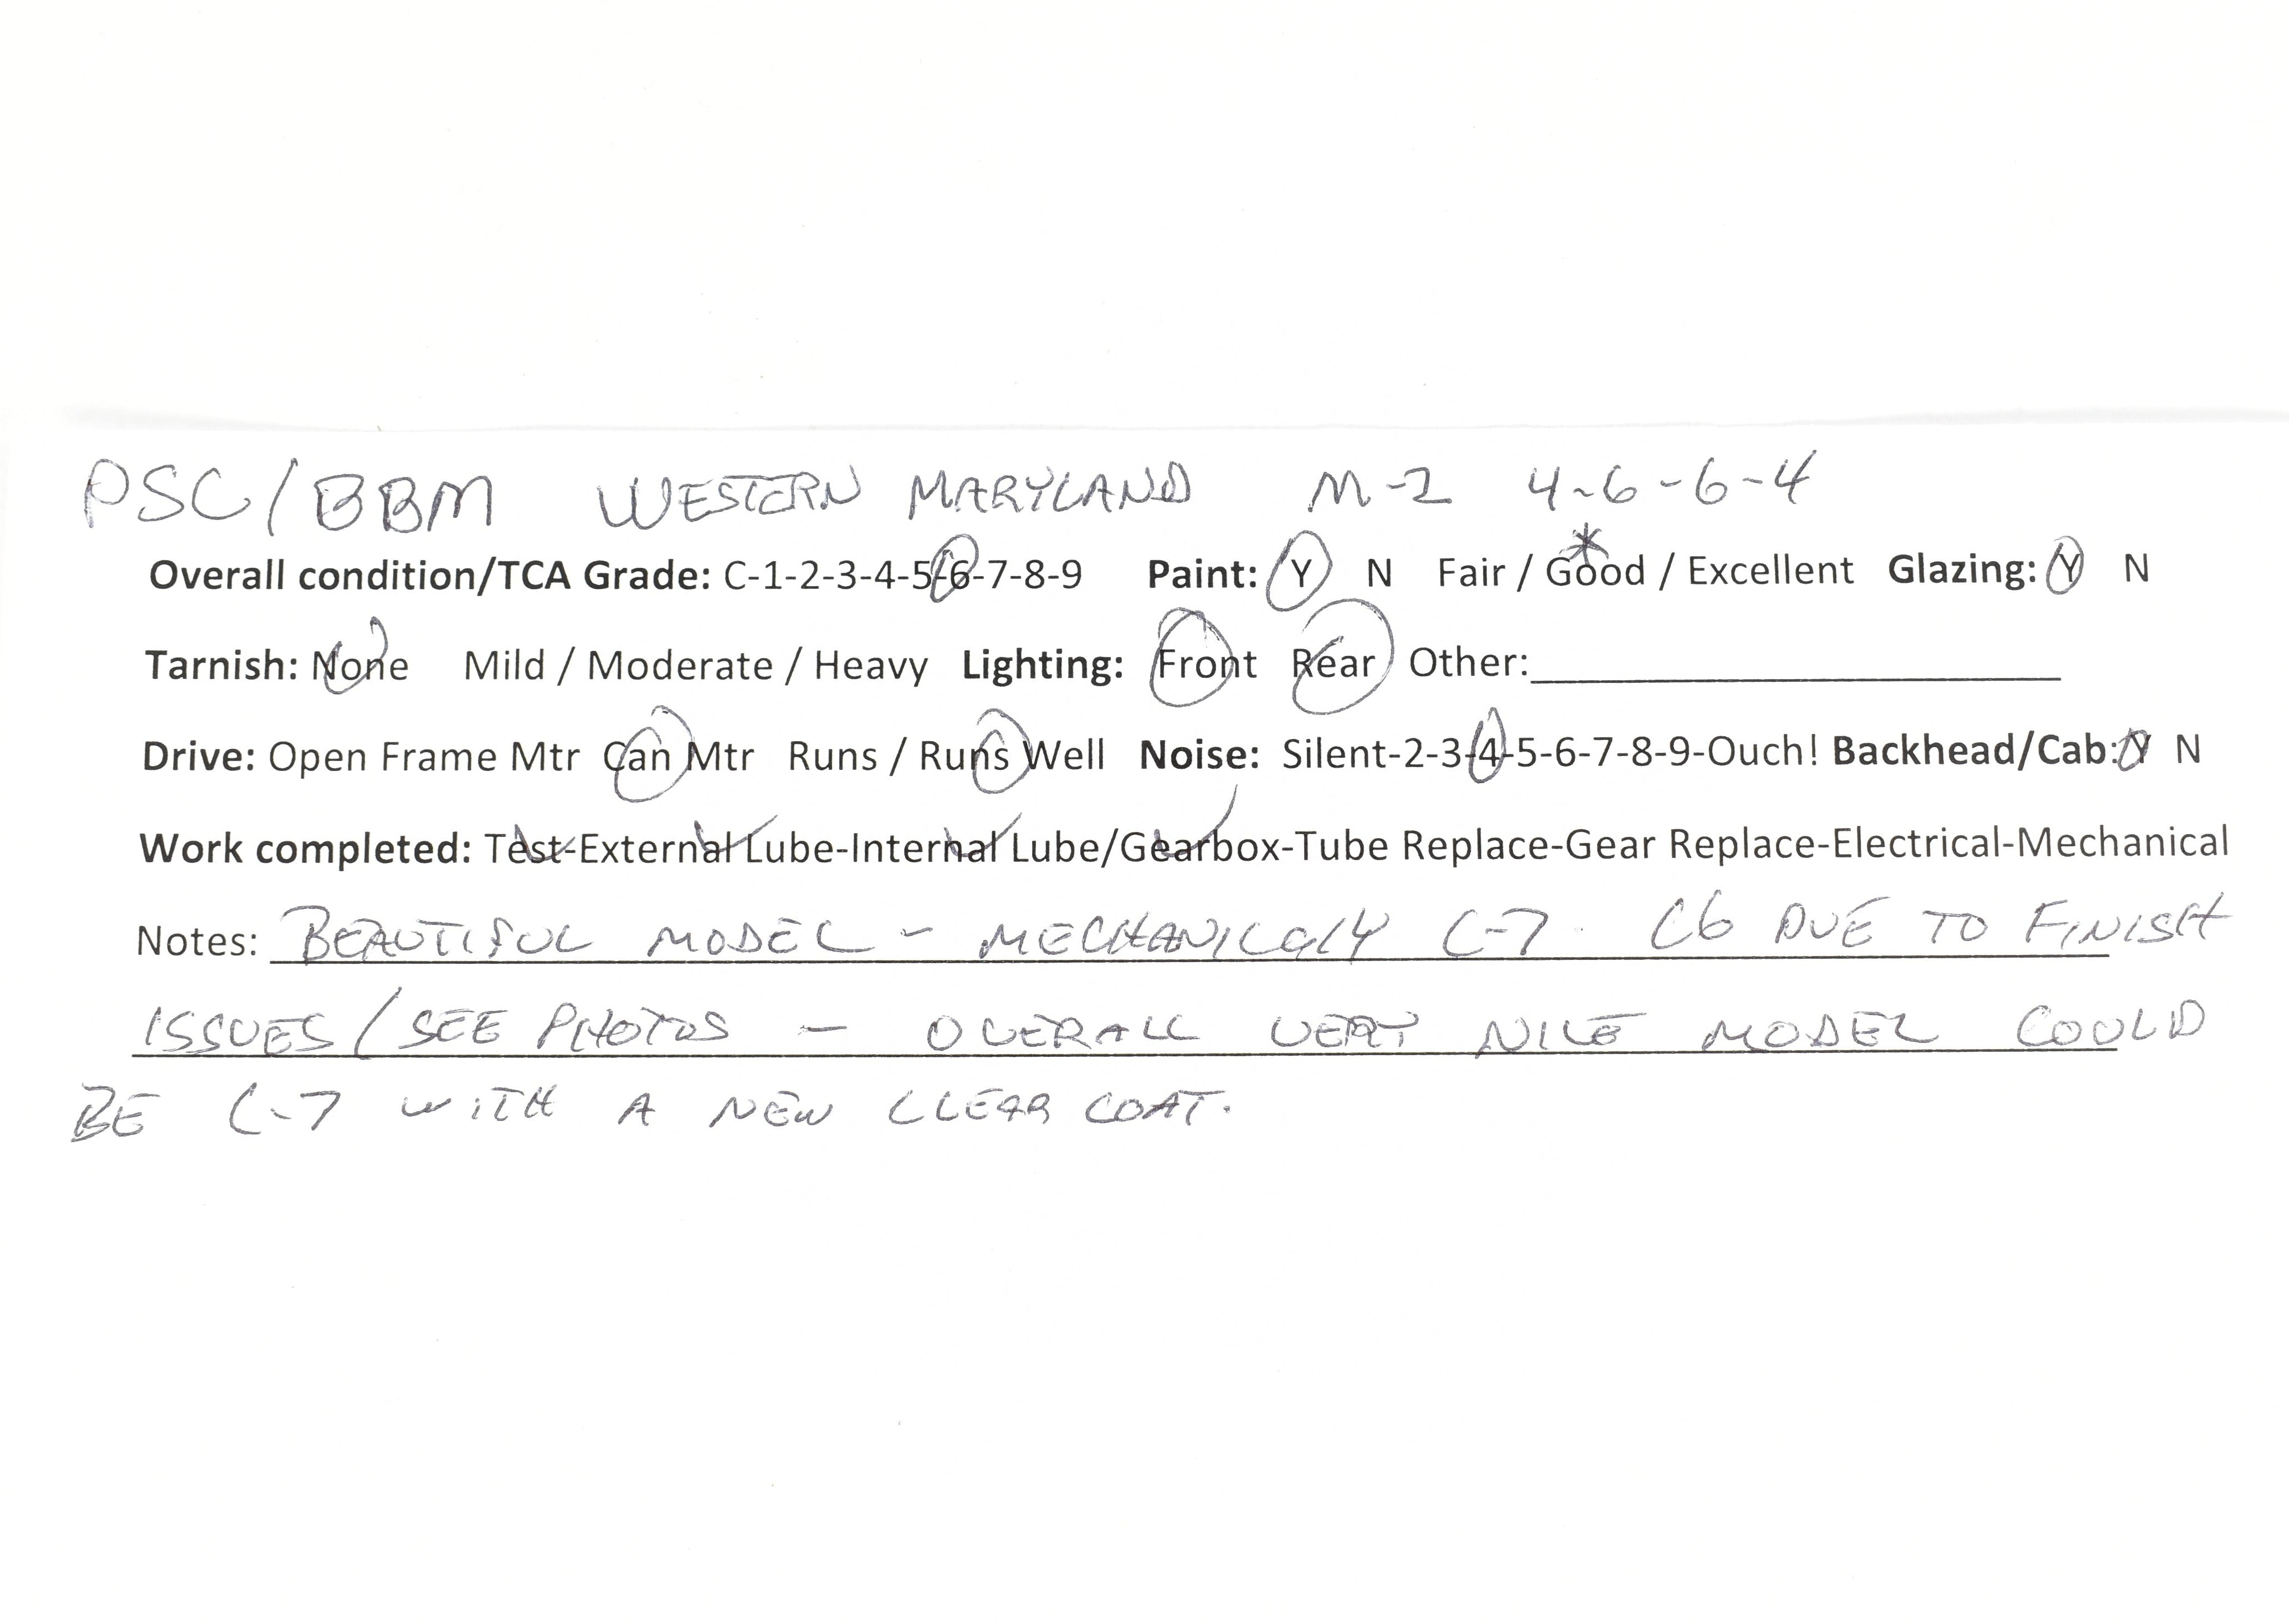 PSC/BBM WESTERN MARYLAND M-2 4-6-6-4
Overall condition/TCA Grade: C-1-2-3-4-5-6-7-8-9 Paint: Y N Fair / Good / Excellent Glazing: Y N
Tarnish: None Mild / Moderate / Heavy Lighting: Front Rear Other:
Drive: Open Frame Mtr Can Mtr Runs / Runs Well Noise: Silent-2-3-4-5-6-7-8-9-Ouch! Backhead/Cab: Y N
Work completed: Test-External Lube-Internal Lube/Gearbox-Tube Replace-Gear Replace-Electrical-Mechanical
Notes: BEAUTIFUL MODEL - MECHANICALLY C-7 C6 DUE TO FINISH
ISSUES/SEE PHOTOS - OVERALL VERY NICE MODEL COULD
BE C-7 WITH A NEW CLEAR COAT.